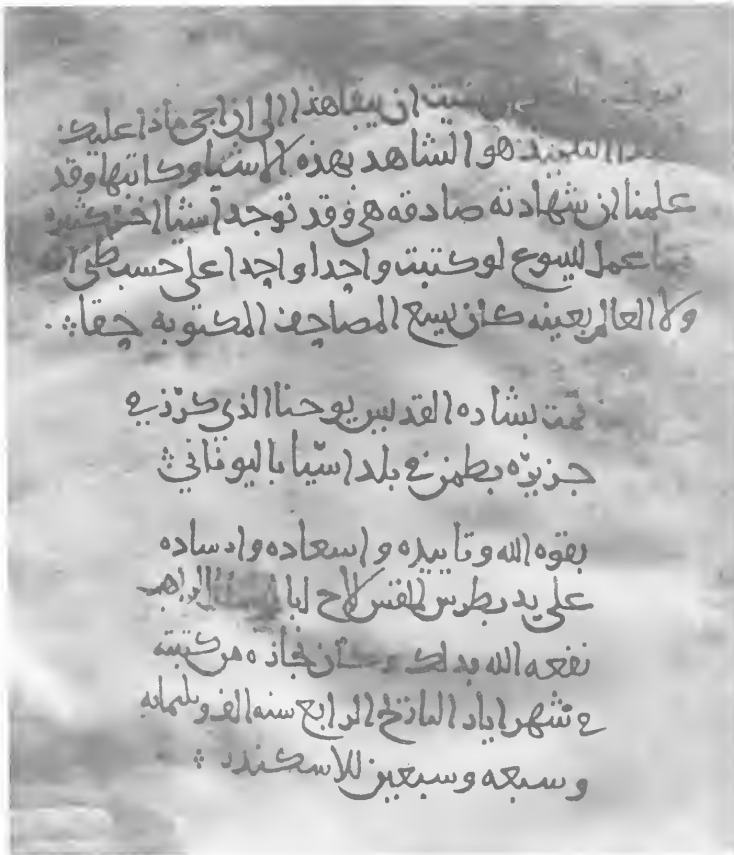 شيت ان يبقا هذا الى ان اجى ماذا عليك
هذا التلميذ هو الشاهد بهذه الاشيا وكاتبها وقد
علمنا ان شهادته صادقه هى وقد توجد أشيا اخر كثيره
مما عمل ليسوع لو كتبت واحدا واحدا على حسب ظنى
ولا العالم بعينه كان يسع المصاحف المكتوبه حقا ⁘
تمت بشاره القديس يوحنا الذي كرّز في
جزيرّه بطمز في بلد اسّيا باليوناني ⁘
بقوه الله وتاييده واسعاده وارساده
على يد بطرس القس الراهب
نفعه الله بذلك وكان نجازه من كتبته
في شهر ايار الماتى الرابع سنه الف وثلثمايه
وسبعه وسبعين للاسكندر ⁘